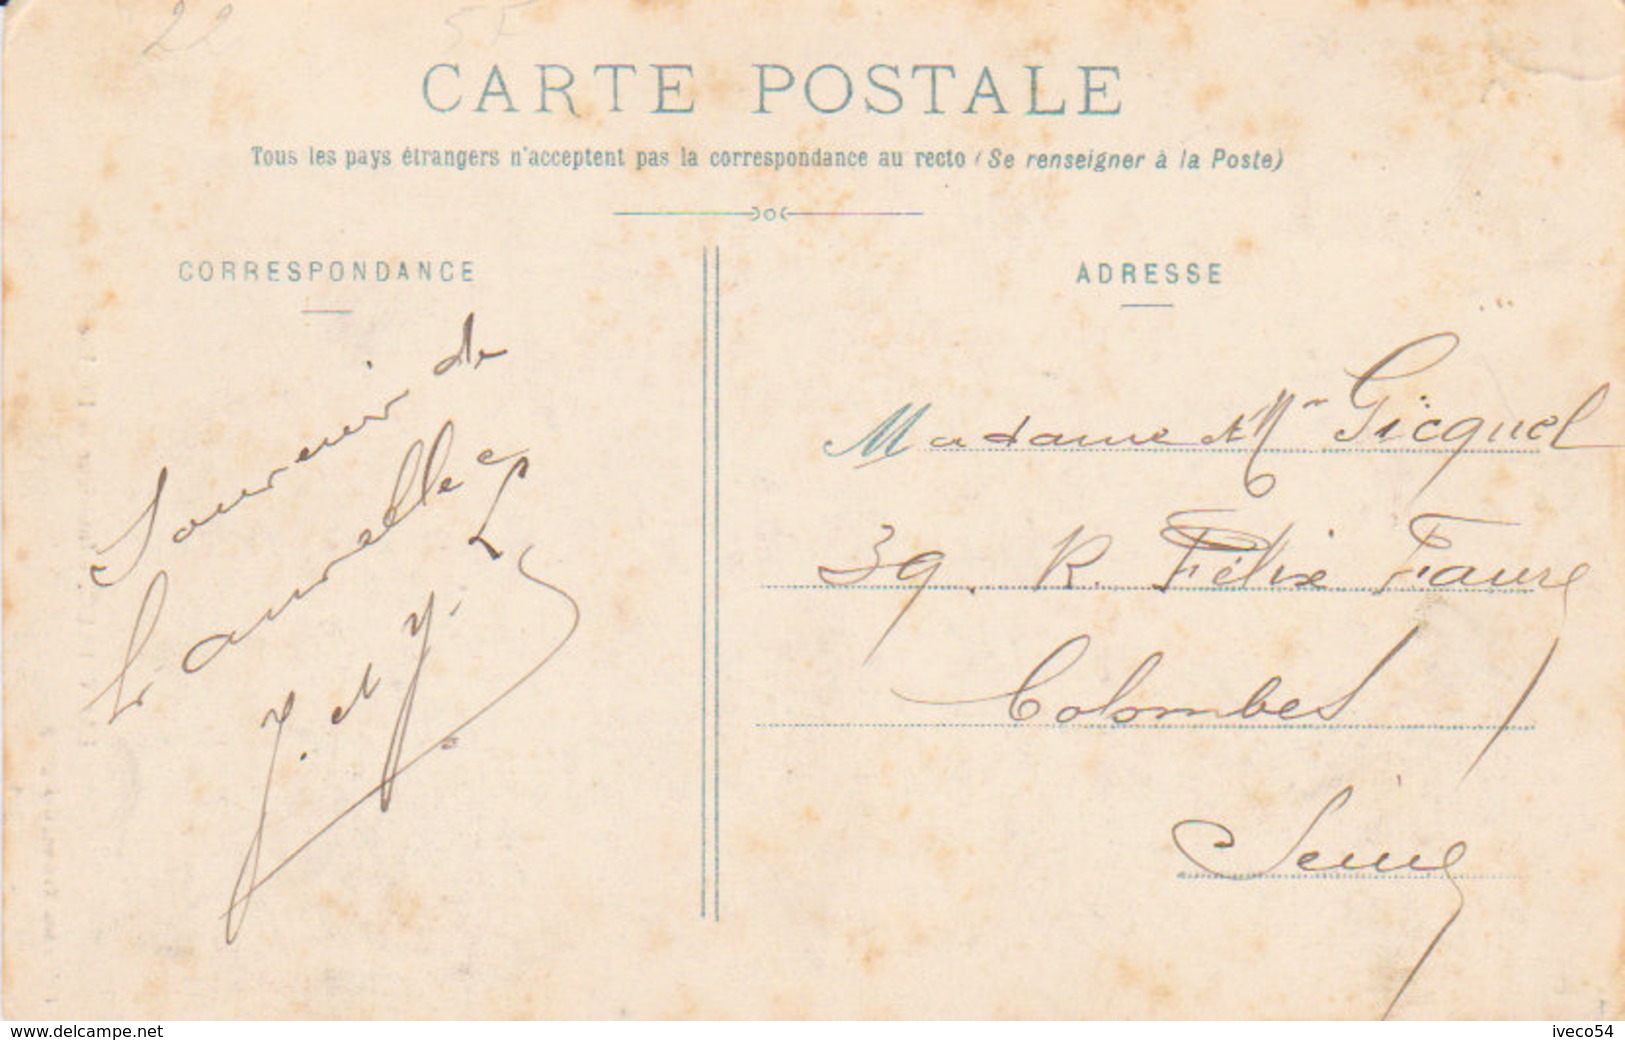 22
CARTE POSTALE
Tous les pays étrangers n'acceptent pas la correspondance au recto (Se renseigner à la Poste)
CORRESPONDANCE
ADRESSE
Souvenir de
J. et J.
Madame et Mr Gicquel
39. R. Félix Faure
Colombes
Seine
www.delcampe.net
iveco54